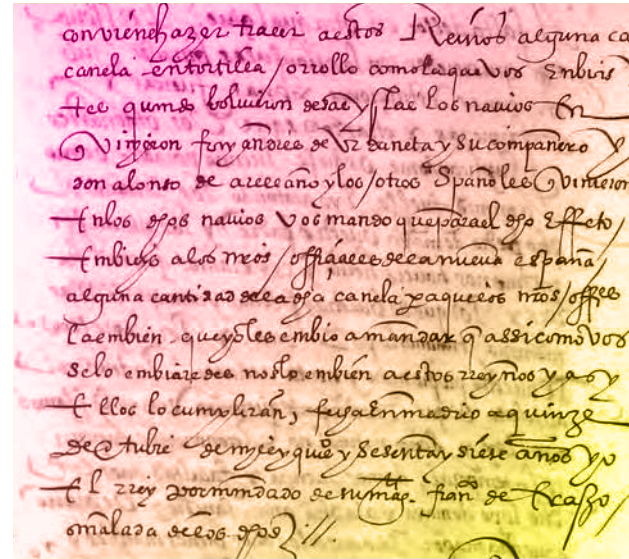 conviene hazer traer a estos Reinos alguna ca
canela en tortilla / o rrollo como la que vos Enbias
tes quando bolvieron desas yslas los navios En
Q vinyeron fray andres de Vrdaneta y su compañero y
don alonso de areeano y los / otros Spañoles Q vinieron
En los dhos navios Vos mando que para el dho Effeto /
Embieis a los mios / offiçiales de la nueva españa /
alguna cantidad de la dha canela pa que los mios / offes
la embien que yo les embio a mandar q assi como vos
se lo embiaredes nos lo embien a estos rreynos y asy
Ellos lo cumpliran, fecha En madrid a quinze
de Otubre de myll y quis y sesenta y siete años yo
El rrey por mandado de su mag. franco de Erasso /
señalada de los dhos //.